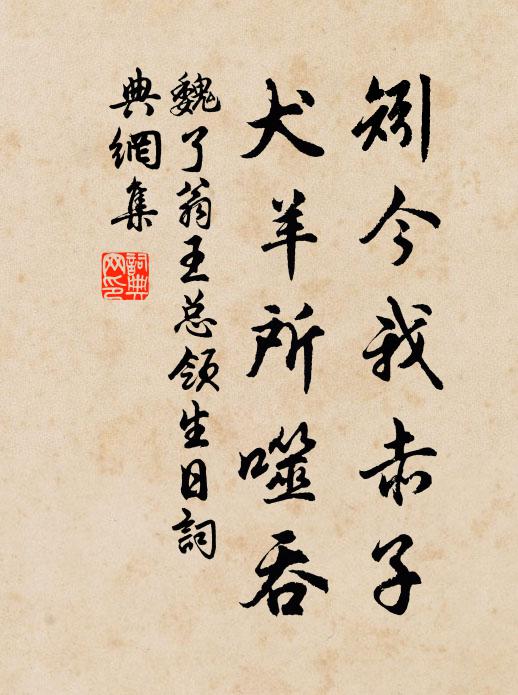 矧今我赤子
犬羊所噬吞
魏了翁王总领生日詞
典網集
詞典網印